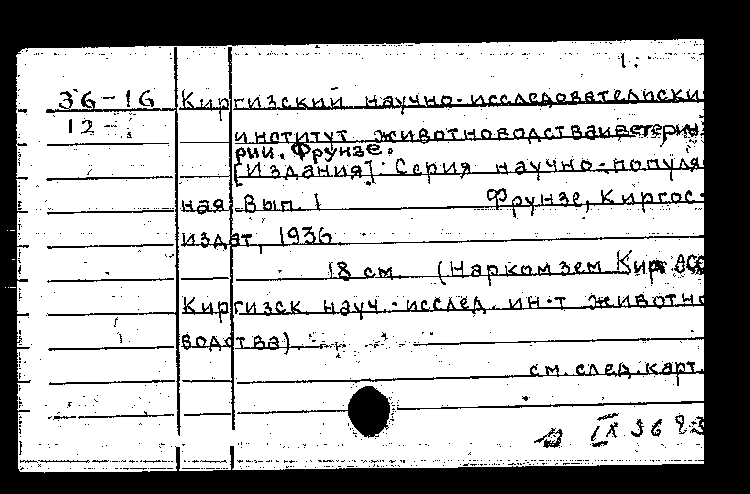 1.
36-16 Киргизский научно-исследовательски
12-
институт животноводстваиветерин
рии. Фрунзе.
[Издания]. Серия научно-популя
ная. Вып. 1 Фрунзе, Киргос-
издат, 1936.
18 см. (Наркомзем Кирг АССР
Киргизск науч.-исслед. ин-т животно
водства).
см. след. карт.
IX 36 23